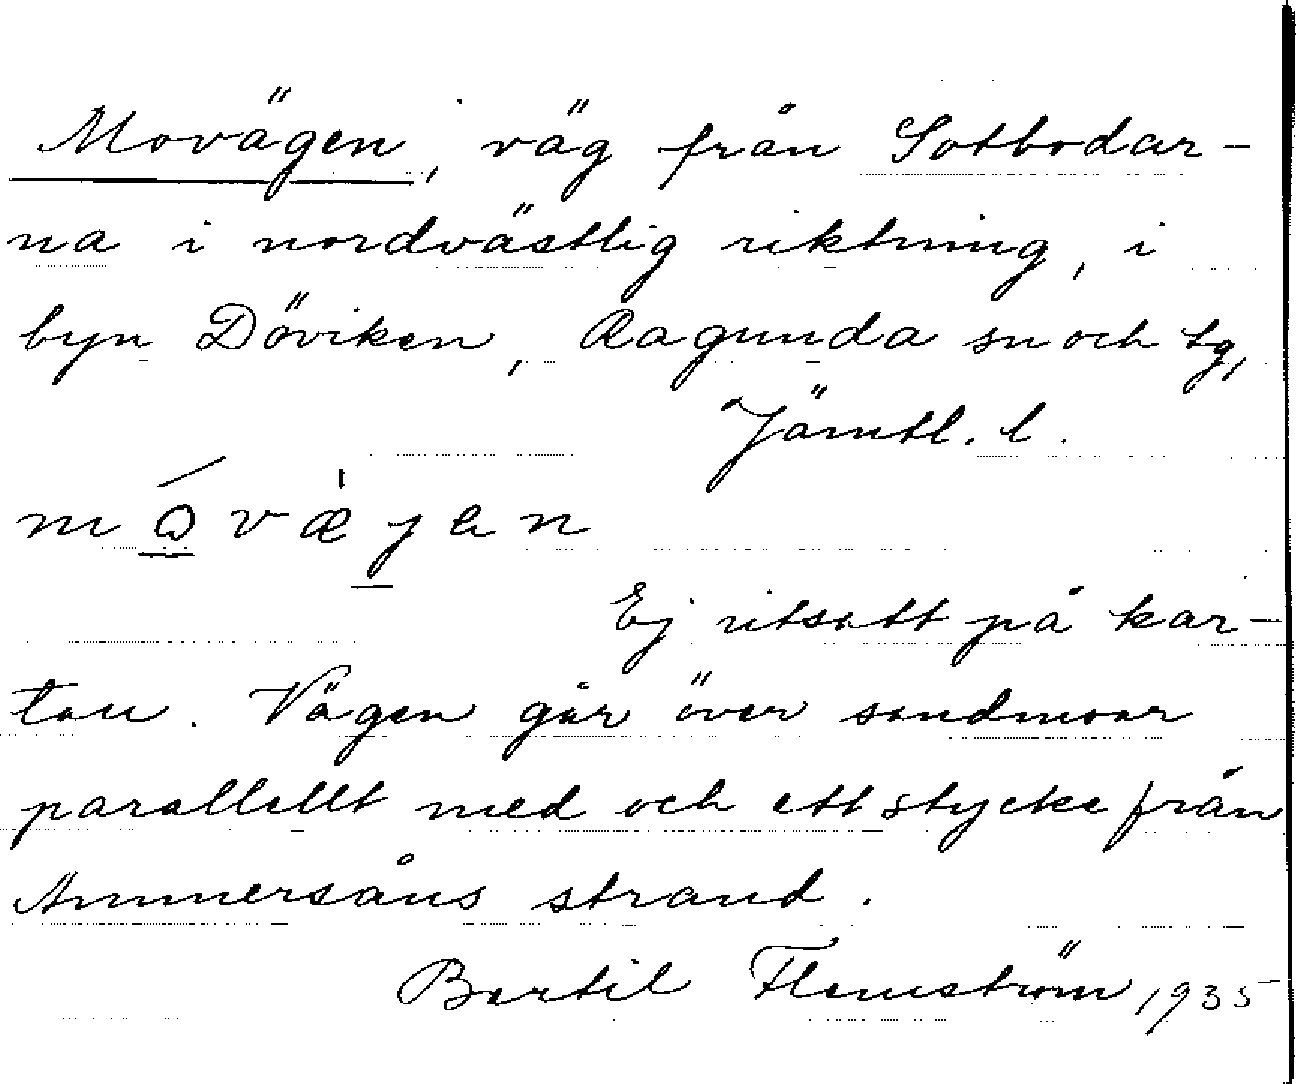 Movägen, väg från Sotbodar-
na i nordvästlig riktning, i
byn Döviken, Ragunda sn och tg,
Jämtl. l.
mǫ́væ̍jen
Ej utsatt på kar-
tan. Vägen går över sandmoar
parallellt med och ett stycke från
Ammersåns strand.
Bertil Flemström, 1935